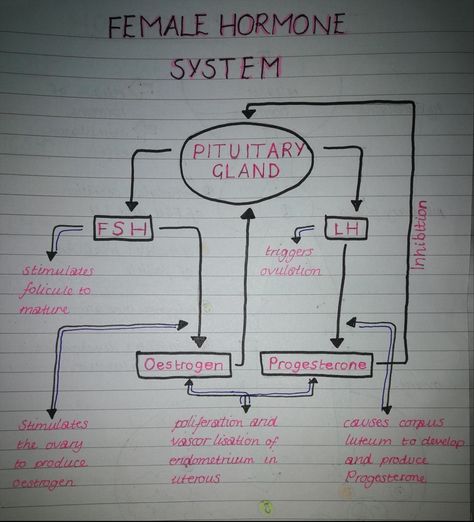 FEMALE HORMONE
SYSTEM
PITUITARY
GLAND
FSH
LH
stimulates
folicule to
mature
triggers
ovulation
Inhibition
Oestrogen
Progesterone
Stimulates
the ovary
to produce
oestrogen
poliferation and
vascorlisation of
endometrium in
uterous
causes corpus
luteum to develop
and produce
Progesterone